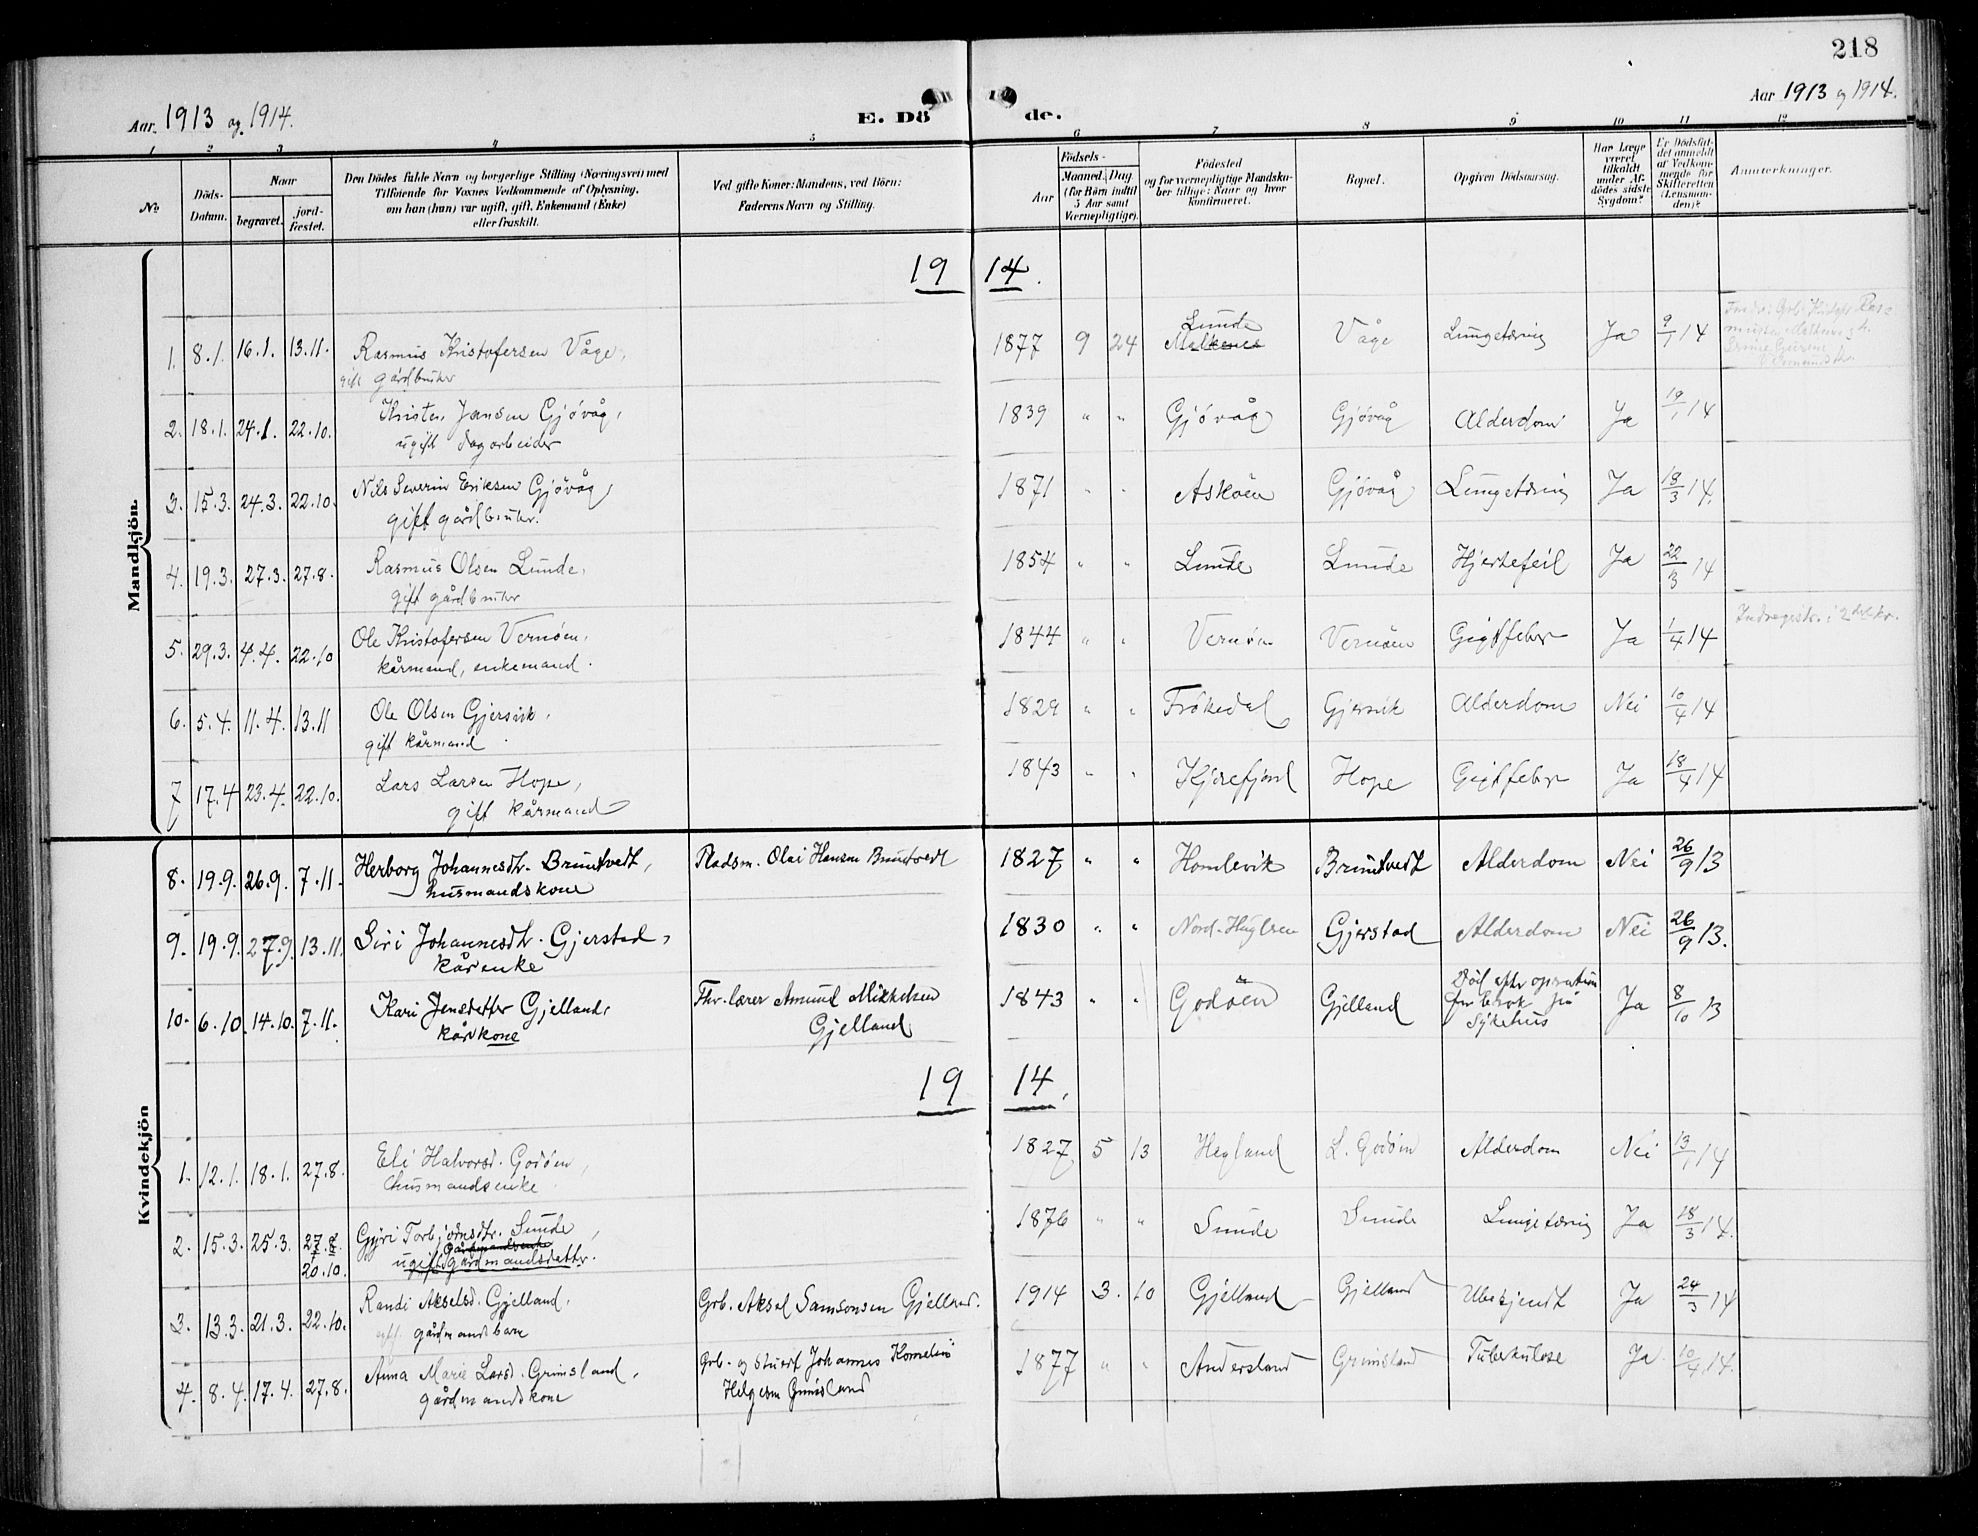 218
Aar. 1913 og 1914.
E. Dö de.
Aar 1913 og 1914.
1 2 3 4 5 6 7 8 9 10 11 12
No
Döds-Datum.
Naar
begravet.
jord-fæstet.
Den Dödes fulde Navn og borgerlige Stilling (Næringsvei) med
Tilföiende for Voxnes Vedkommende af Oplysning,
om han (hun) var ugift, gift, Enkemand (Enke)
eller fraskilt.
Ved gifte Koner: Mandens, ved Börn:
Faderens Navn og Stilling.
Födsels-
Aar
Maaned. Dag
(for Börn indtil
5 Aar samt
Værnepligtige).
Födested
og for værnepligtige Mandska-
ber tillige: Naar og hvor
konfirmeret.
Bopæl.
Opgiven Dödsaarsag.
Har Læge
været
tilkaldt
under Af-
dödes sidste
Sygdom?
Er Dödsfal-
det anmeldt
af Vedkom-
mende for
Skifteretten
(Lensman-
den)?
Anmerkninger.
Mandkjön.
1914.
1. 8.1. 16.1. 13.11. Rasmus Kristofersen Våge, 1877 9 24 Lunde Våge Lungetæring Ja 9/1 14
gift gårdbruker
2. 18.1. 24.1. 22.10. Krister Jansen Gjøvåg, 1839 " " Gjøvåg Gjøvåg Alderdom Ja 19/1 14
ugift dagarbeider
3. 15.3. 24.3. 22.10. Nils Severin Eriksen Gjøvåg, 1871 " " Askøen Gjøvåg Lungetæring Ja 18/3 14.
gift gårdbruker.
4. 19.3. 27.3. 27.8. Rasmus Olsen Lunde, 1854 " " Lunde Lunde Hjertefeil Ja 22/3 14
gift gårdbruker
5. 29.3. 4.4. 22.10 Ole Kristofersen Vernøen, 1844 " " Vernøen Vernøen Gigtfeber Ja 1/4 14 Indregistr. i
kårmand, enkemand.
6. 5.4. 11.4. 13.11 Ole Olsen Gjersvik, 1829 " " Frøkedal Gjersvik Alderdom Nei 10/4 14
gift kårmand
7 17.4 23.4. 22.10. Lars Larsen Hope, 1843 " " Kjerefjord Hope Gigtfeber Ja 18/4 14
gift kårmand
Kvindekjön
8. 19.9. 26.9. 7.11. Herborg Johannesdtr. Bruntvedt, Pladsm. Olai Hansen Bruntvedt 1827 " " Homlevik Bruntvedt Alderdom Nei 26/9 13
husmandskone
9. 19.9. 27.9. 13.11. Siri Johannesdtr. Gjerstad, 1830 " " Nord-Huglen Gjerstad Alderdom Nei 26/9 13.
kårenke
10. 6.10. 14.10. 7.11. Kari Jensdatter Gjelland, Fhv. lærer Amund Mikkelsen Gjelland 1843 " " Godøen Gjelland Död efter operation for brok på Sykehus Ja 8/10 13
kårkone
1914.
1. 12.1. 18.1. 27.8. Eli Halvorsd. Godøen, 1827 5 13 Hegland L. Godøen Alderdom Nei 13/1 14
husmandsenke
2. 15.3. 25.3. 27.8 20.10. Gyri Torbjørnsdtr. Sunde, 1876 " " Sunde Sunde Lungetæring Ja 18/3 14.
ugift gårdmandsdatter.
3. 13.3. 21.3. 22.10. Randi Akselsd. Gjelland, Grb. Aksel Samsonsen Gjelland. 1914 3. 10 Gjelland Gjelland Ubekjendt Ja 24/3 14
gårdmandsbarn
4. 8.4. 17.4. 27.8. Anna Marie Larsd. Grimsland, Grb. og Johannes Helgesen Grimsland 1877 " " Andersland Grimsland Tuberkulose Ja 10/4 14.
gårdmandskone